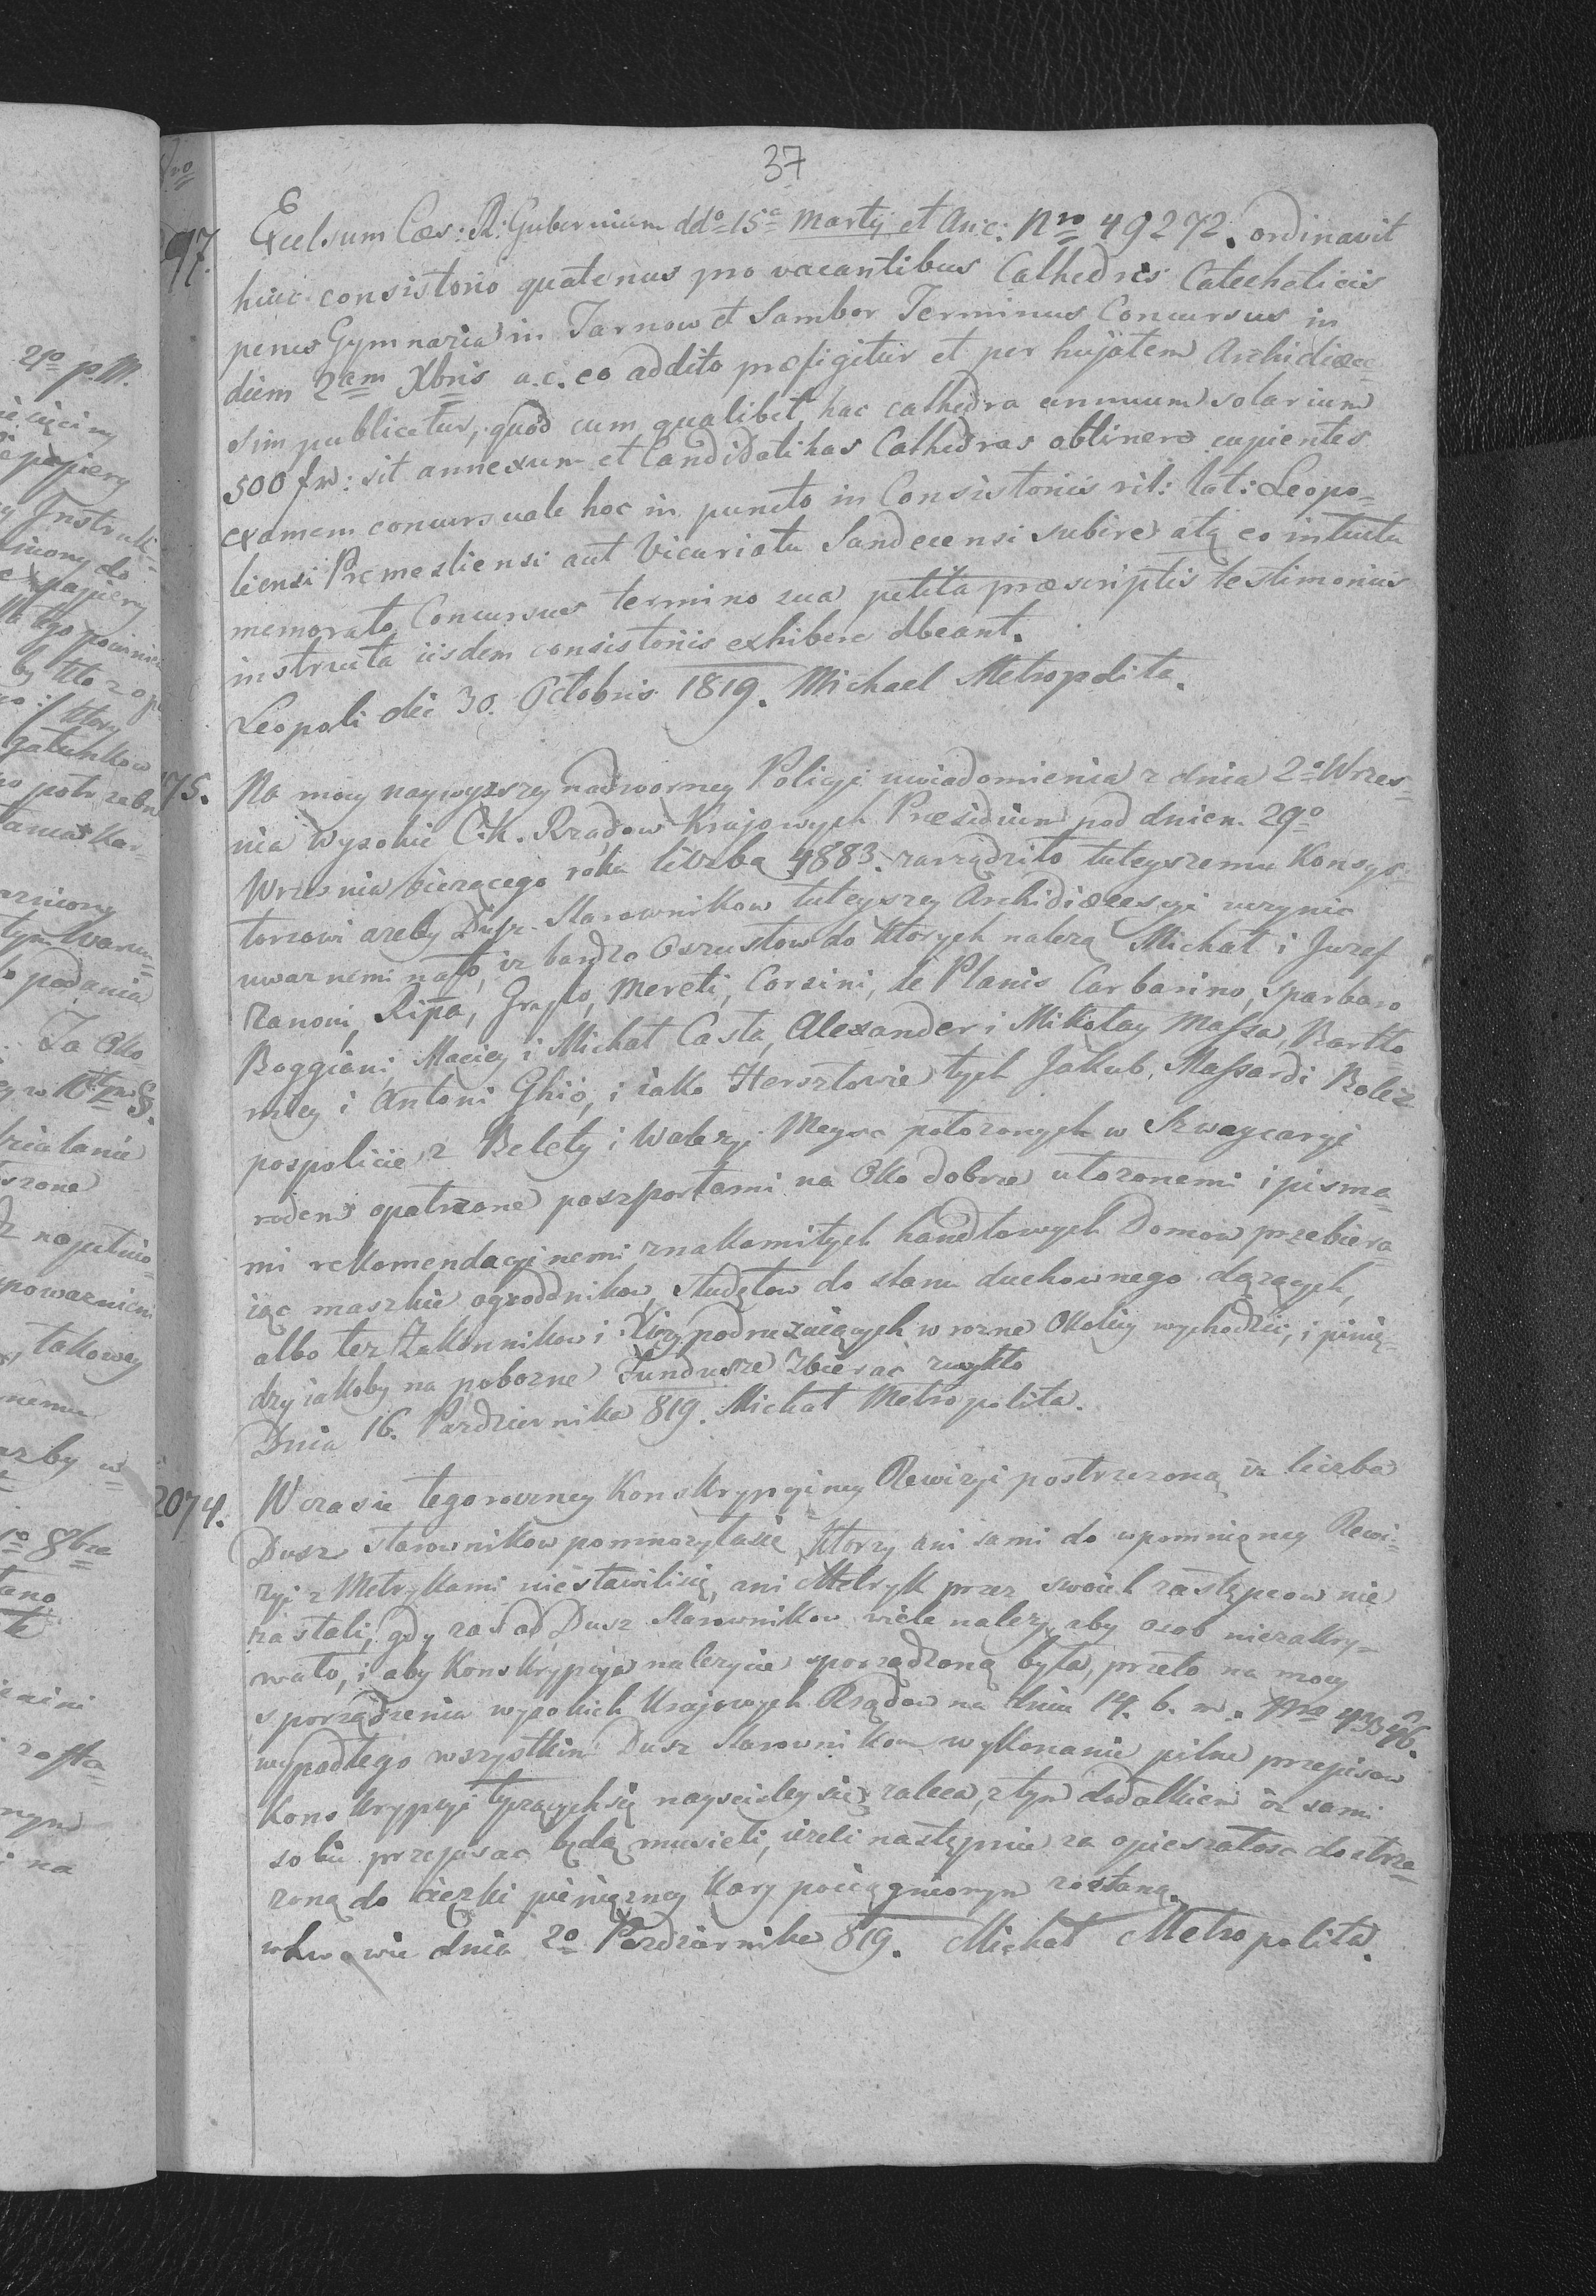 37
97. Excelsum Caes: R: Gubernium ddo 15a Martÿ et Anc: Nro 49272. ordinavit
huic consistorio quatenus pro vacantibus Cathedris Catecheticis
penes Gymnazia in Tarnow et Sambor Terminus Concursus in
diem 2am Xbris a.c. eo addito praefigitur et per hujatem Archidiaece=
sim publicetur, quod cum qualibet hac cathedra annuum solarium
500 fr: sit annexum et Candidati has Cathedras obtinere cupientes
examem concursuale hoc in puncto in Consistoriis rit: lat: Leopo=
liensi Premesliensi aut Vicariatu Sandecensi subire atq eo intuitu
memorato Concursus termino sua petita praescriptis testimoniis
instructa iisdem consistoriis exhibere dbeant.
Leopoli die 30. Octobris 1819. Michael Metropolita.
75. Na mocy naywyzszey nadworney Policyi uwiadomienia z dnia 2o Wrzes=
nia Wysokie C.K. Rządow Krajowych Praesidium pod dniem 29o
Wrzesnia biezącego roka liczba 4883. zarządziło tuteyszemu Konsys=
torzowi azeby Dusz-Starownikow tuteyszey Archidiecesyi uczynic
uwaznemi nato, iz bardzo Oszustow do ktorych nalezą Michał i Juzef
Zanoni, Ripa, Mereti, Corsini, de Planis Carbarino, Sparbaro
Boggiani, Maciey i Michał Casta, Alexander i Mikołay Massa, Bartło
miey i Antoni Ghio, i iako Hersztowie tych Jakub, Massardi Bolez
pospolicie z Belety i Walezyi Meysc położonych w Szwaycaryi
rodem opatrzone paszportami na Oko dobrze ułozonemi i pisma=
mi rekomendacyinemi znakomitych handlowych Domow przebiera=
iąc maszkie ogroddnikow, studętow do stanu duchownego dązących,
albo tez Zakonnikow i Xięzy podruzuiących w rozne Okolicy wychodzic, i pinię=
dzy jakoby na pobozne Fundusze Zbierac zwykło
Dnia 16. Pazdziernika 819. Michał Metropolita.
2074. W czasie tegoroczney Konskrypcyiney Rewizyi postrzezoną iz liczba
Dusz starownikow pomnozyłasie, ktorzy ani sami do wpomnięney Rewi=
zyi z Metrykami niestawilisię, ani Metryk przez swoich zastępcow nie
zastali, gdy zas od Dusz Starownikow wiele nalezy, aby osob niezakry=
wało, i aby Konskrypcya nalezycie sporządzoną była, przeto na mocy
sporządzenia wysokich Krajowych Rządow na dniu 14. b. m. Nro 43346.
wypadłego wszystkim Dusz Starownikom wykonanie pilne przepisow
Konskrypcyi tyzączychsię nayscisleysie zaleca, z tym dodatkiem iz sami
sobie przepisac będą musieli, iezeli następnie za opieszałosc dostrze=
zoną do ciezki pienięzney Kary pociągnionym zostaną.
wLwowie dnia 2o Pazdziernika 819. Michał Metropolita.